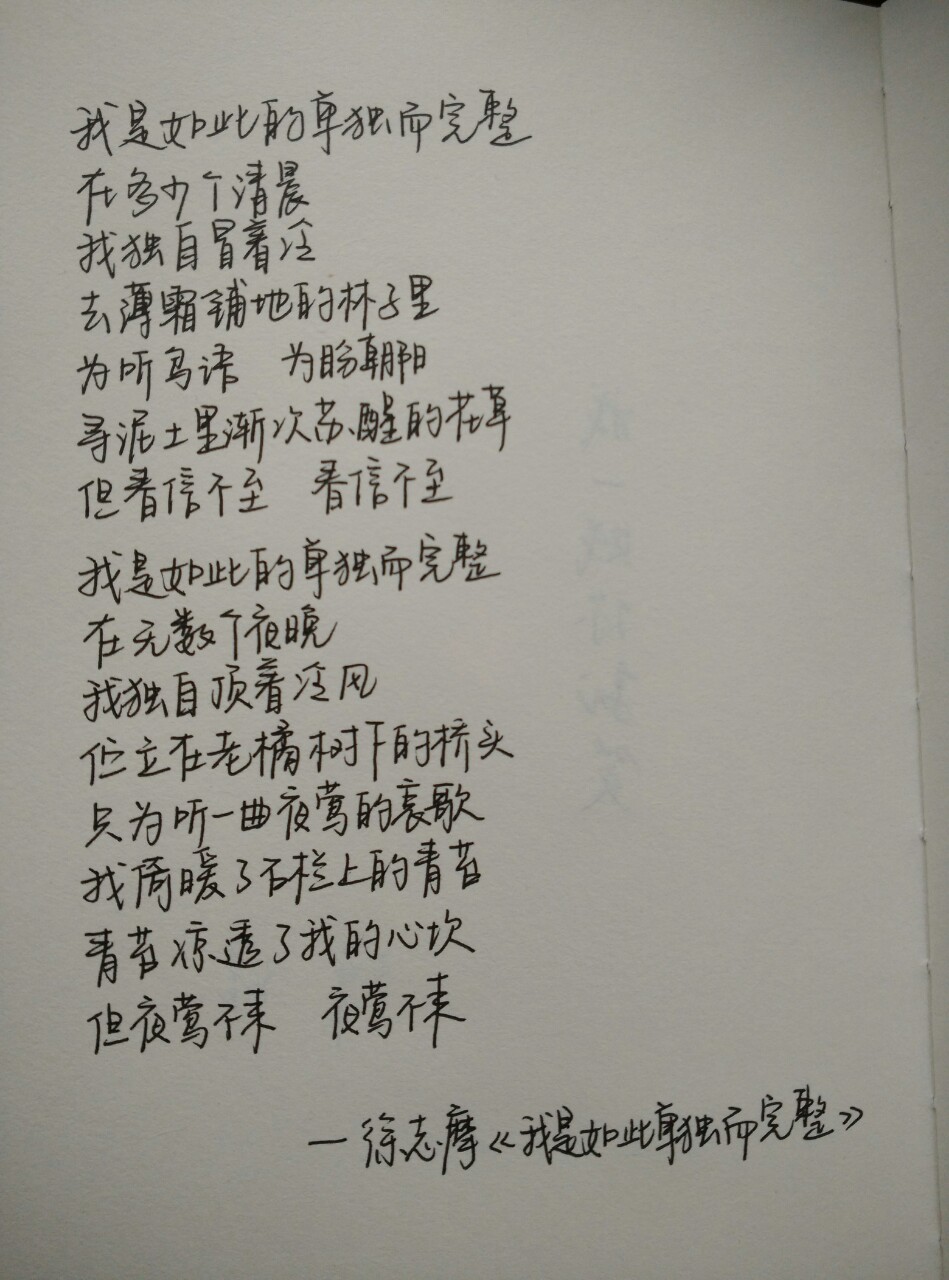 我是如此的单独而完整
在多少个清晨
我独自冒着冷
去薄霜铺地的林子里
为听鸟语 为盼朝阳
寻泥土里渐次苏醒的花草
但春信不至 春信不至
我是如此的单独而完整
在无数个夜晚
我独自顶着冷风
伫立在老橘树下的桥头
只为听一曲夜莺的哀歌
我倚暖了石栏上的青苔
青苔凉透了我的心坎
但夜莺不来 夜莺不来
一徐志摩《我是如此单独而完整》